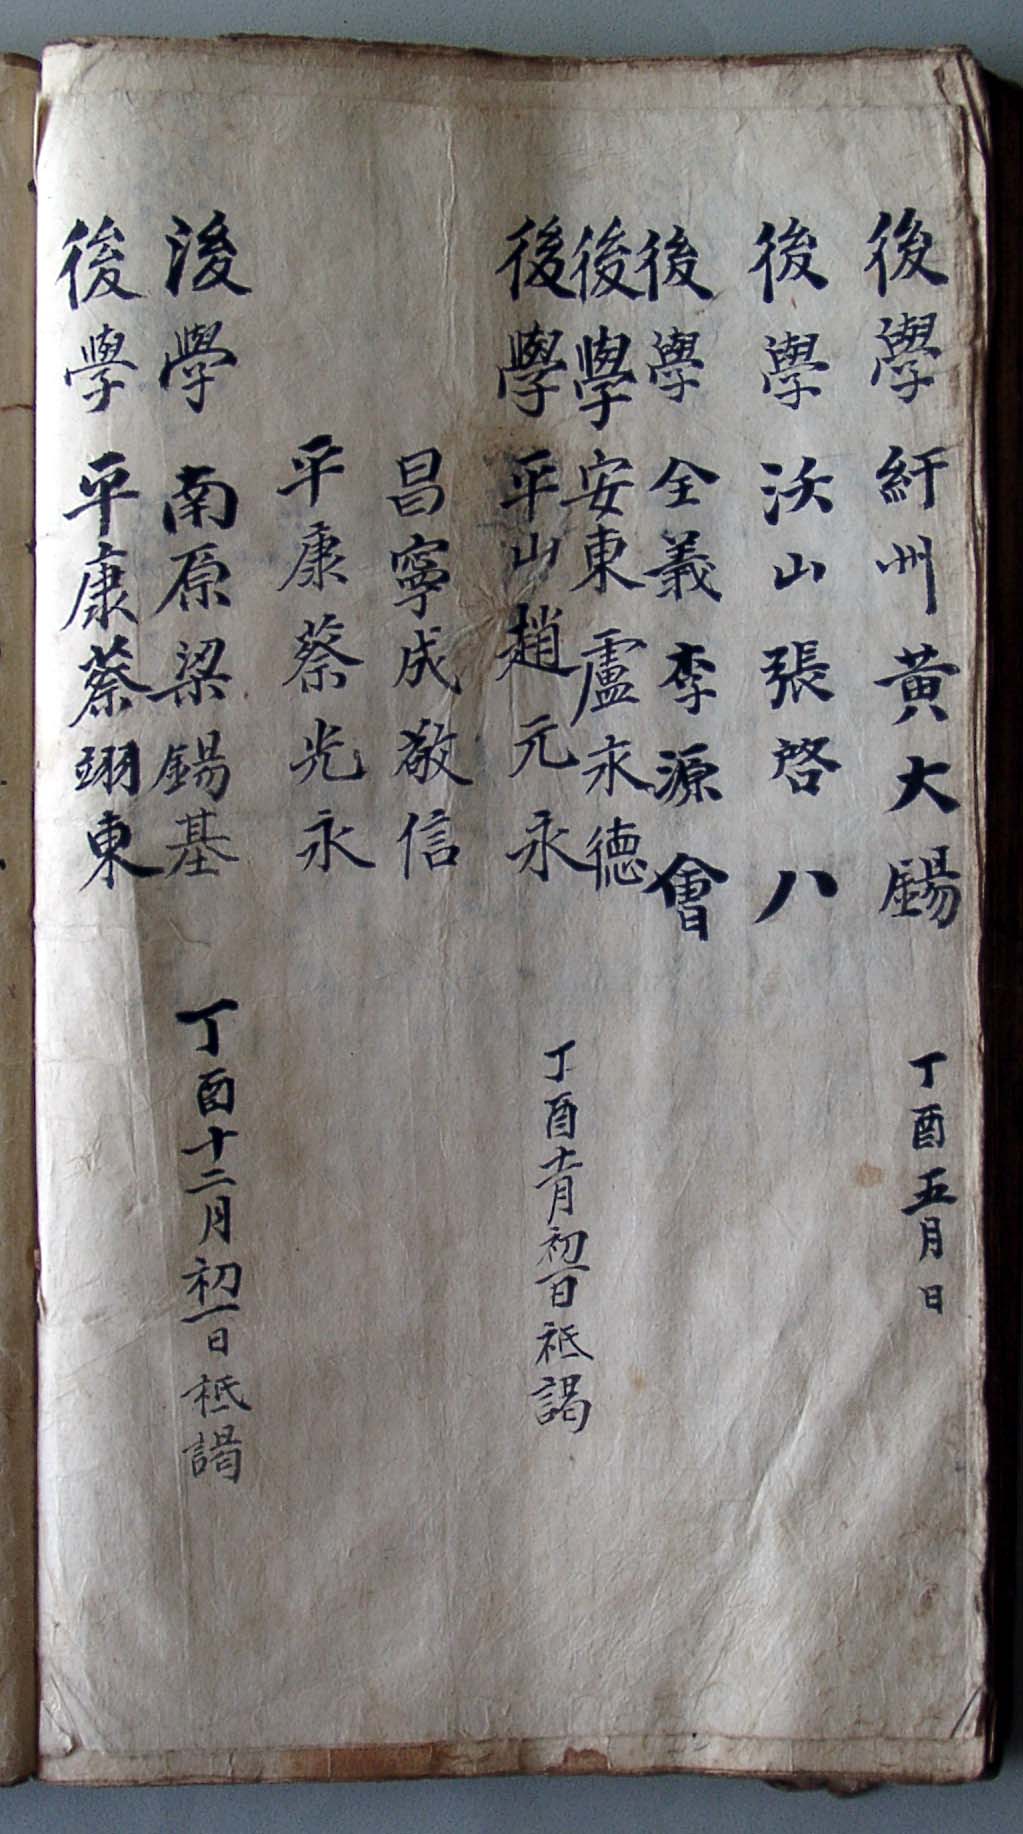 後學 紆州黃大錫 丁酉五月日
後學 沃山張啓八
後學 全義李源會
後學 安東盧永德 丁酉十月初一日祗謁
後學 平山趙元永
昌寧成敬信
平康蔡光永
後學 南原梁錫基 丁酉十二月初一日祗謁
後學 平康蔡翊東